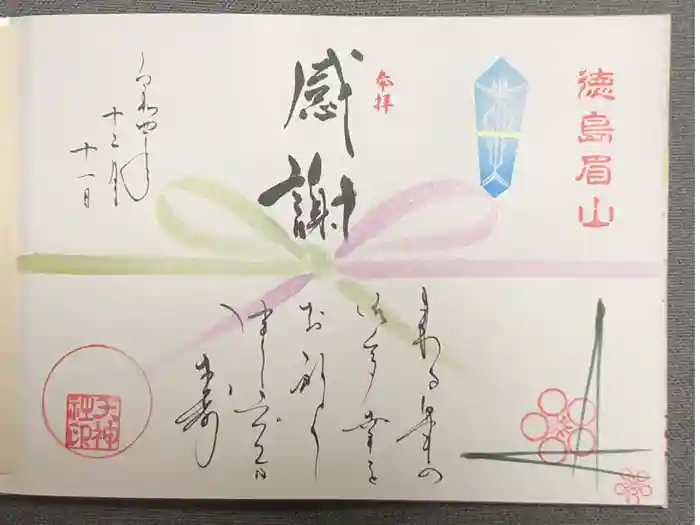 徳島眉山
奉拝
感謝
来る年の
ご多幸を
お祈り
申し上げます
令和四年
十二月
十一日
天神社印